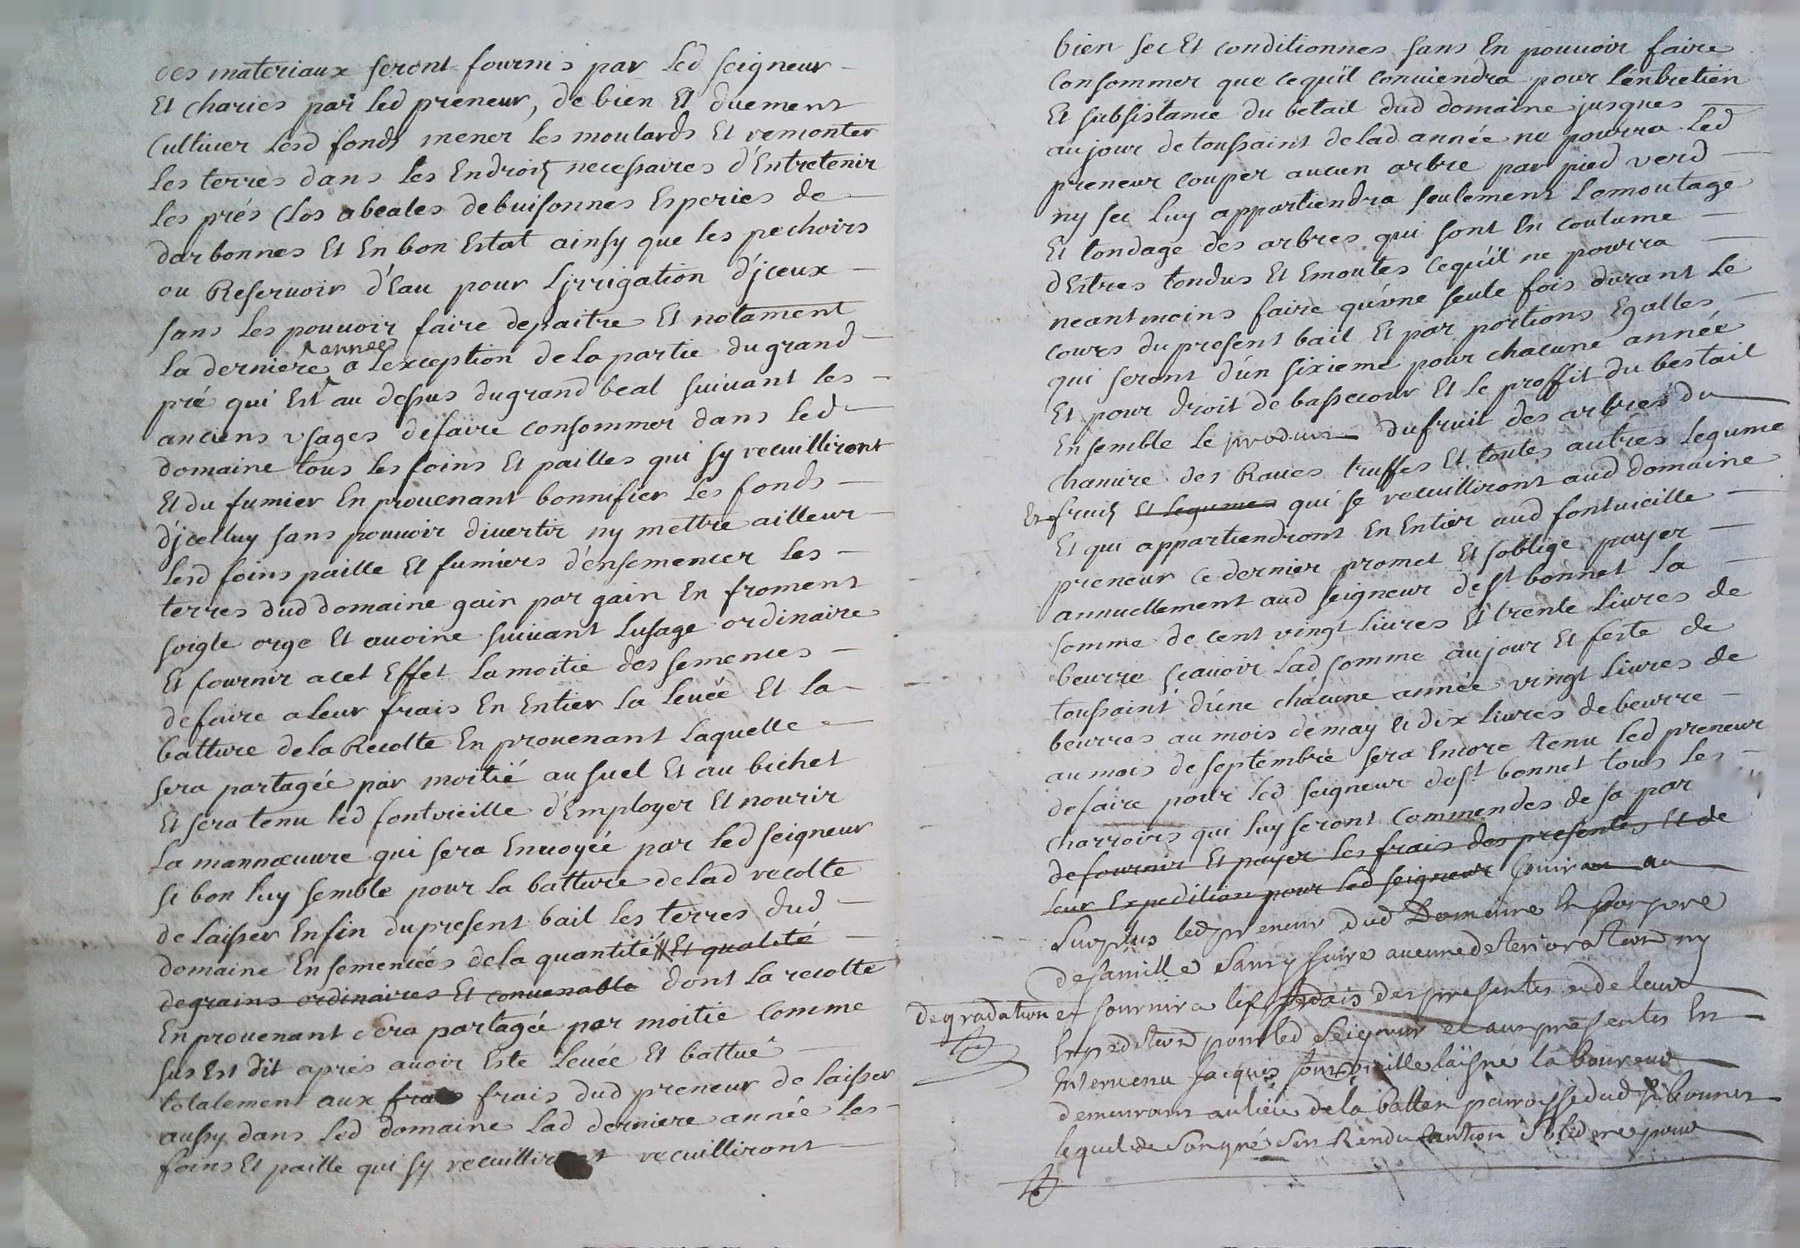 des materiaux seront fournis par led seigneur
Et chariés par led preneur, de bien Et duement
Cultiver lesd fonds mener les moulards Et remonter
les terres dans les Endroits necessaires d'Entretenir
les prés Clos abeales debuisonnes Esperies de
darbonnes Et En bon Estat ainsy que les pechoirs
ou Reservoir d'Eau pour Ljrrigation d'jceux
sans les pouvoir faire depaitre Et notament
la derniere année a lexception de la partie du grand
pré qui Est au dessus dugrand beal suivant les
anciens usages defaire consommer dans led
domaine tous les foins Et pailles qui sy recuilliront
Et du fumier En provenant bonnifier les fonds
d'jcelluy sans pouvoir divertir ny mettre ailleur
lesd foins paille Et fumiers d'ensemencer les
terres dud domaine gain par gain En froment
soigle orge Et avoine suivant lusage ordinaire
Et fournir acet Effet la moitie des semences
defaire aleur frais En Entier la levée Et la
batture dela Recolte En provenant laquelle
sera partagée par moitié au suel Et au bichet
Et sera tenu led fontvieille d'Employer Et nourir
la mannœuvre qui sera Envoyée par led seigneur
si bon luy semble pour la batture delad recolte
de laisser Enfin dupresent bail les terres dud
domaine Ensemencées dela quantité Et qualité
degrains ordinaires Et convenable dont la recolte
En provenant sera partagée par moitie comme
sus Est dit aprés avoir Esté levée Et battue
totalement aux frais frais dud preneur de laisser
aussy dans led domaine lad derniere année les
foins Et paille qui sy recuilliront recuilliront
bien sec Et conditionnes sans En pouvoir faire
consommer que cequ'il conviendra pour l'entretien
Et subsistance du betail dud domaine jusques
au jour de toussaint delad année ne pourra led
preneur couper aucun arbre par pied verd
ny sec luy appartiendra seulement lemoutage
Et tondage des arbres qui sont En coutume
d'Estres tondus Et Emoutes cequ'il ne pourra
neantmoins faire qu'une seule fois durant le
cours du present bail Et par portions Egalles
qui seront d'un sixieme pour chacune année
Et pour droit de bassecour Et le proffit du bestail
Ensemble le produit dufruit des arbres du
chanvre des Raves truffes Et toutes autres legume
Et fruits Et legumes qui se recuilliront aud domaine
Et qui appartiendront En Entier aud fontvieille
preneur ce dernier promet Et soblige payer
annuellement aud seigneur de st bonnet la
somme de cent vingt livres Et trente livres de
beurre scavoir lad somme aujour Et feste de
toussaint d'une chacune année vingt livres de
beurres au mois de may Et dix livres debeurre
au mois de septembre sera Encore tenu led preneur
defaire pour led seigneur de st bonnet tous les
charroirs qui luy seront commendes de sa par
defournir Et payer les frais des presentes Et de
leur Expedition pour led seigneur jouir au
Surplus led preneur dud Domaine En bon pere
defamille sans y faire aucune deterioration ny
degradation et fournira les frais des presentes et de leur
Expedition pour led Seigneur et aux presentes En
Intervenu Jacques fontvieille laisné laboureur
demeurant au lieu de la batten paroisse dud st bonnet
lequel de Son gré Sen Rendu Caution Solidere pour